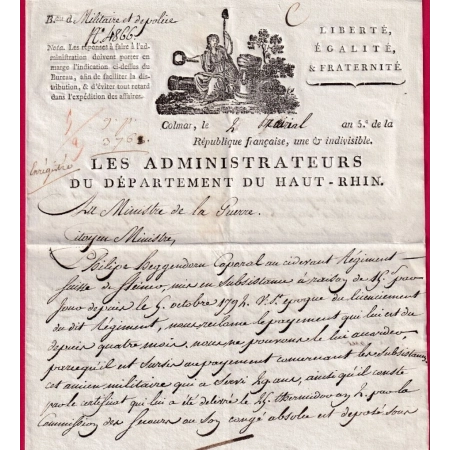 B.eau d Militaire et de police
N.° 4866.
Nota. Les réponses à faire à l'ad-
ministration doivent porter en
marge l'indication ci-dessus du
Bureau, afin de faciliter la dis-
tribution, & d'éviter tout retard
dans l'expédition des affaires.
C
LIBERTÉ,
ÉGALITÉ,
& FRATERNITÉ.
Colmar, le 2 an 5.e de la
République française, une & indivisible.
Enregistré
LES ADMINISTRATEURS
DU DÉPARTEMENT DU HAUT-RHIN.
Au Ministre de la Guerre.
Citoyen Ministre,
Philipe Heggendorn Caporal au cidevant Régiment
suisse de Steiner, mis en Subsistance à raison de 15.s par
Jour depuis le 5. octobre 1792. V.S. époque du licenciement
du dit Régiment, nous reclame le payement qui lui est du
depuis quatre mois, nous ne pouvons le lui accorder
parcequ'il est sursis au payement concernant les Subsistances
cet ancien militaire qui a servi ans, ainsi qu'il conste
par le certificat qui lui a été delivré le 25. thermidor an 2. par la
Commission des Secours ou son congé absolu est deposé sous